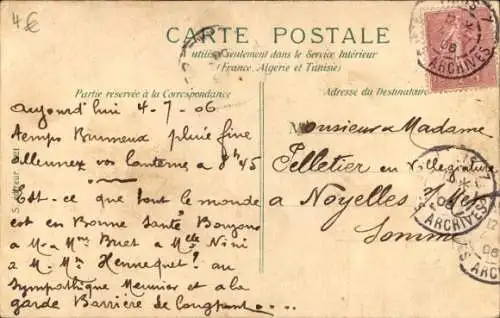 4€
CARTE POSTALE
utilisée seulement dans le Service Intérieur
(France, Algérie et Tunisie)
Partie réservée à la Correspondance
Adresse du Destinataire
Aujourd'hui 4-7-06
temps Brumeux pluie fine
allumez vos lanterne a 8h45
Est-ce que tout le monde
est en Bonne Santé Bonjour
a M. a Mme Buet a Melle Nini
a M. Mme Hennequet? au
Sympathique Meunier et a la
garde Barrière de
Monsieur a Madame
Pelletier en Villégiature
a Noyelles s/Mer
Somme
ARCHIVES
06
ARCHIVES
06
ARCHIVES
06